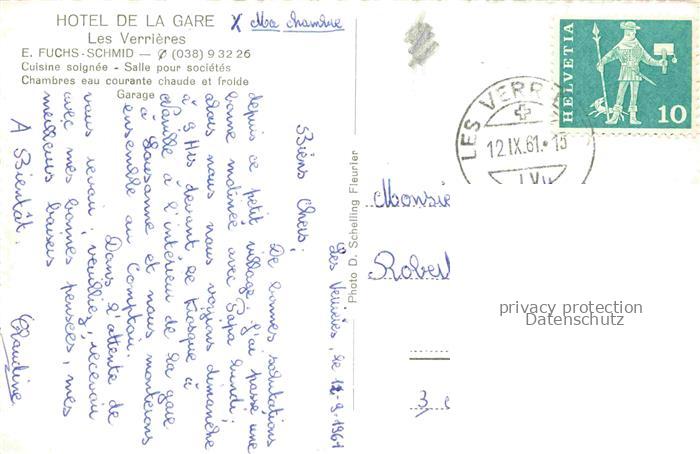 HOTEL DE LA GARE
Les Verrières
E. FUCHS-SCHMID — ✆ (038) 9 32 26
Cuisine soignée - Salle pour sociétés
Chambres eau courante chaude et froide
Garage
X Ma chambre
Les Verrières, le 12-9-1961
Biens Chers,
De bonnes salutations
depuis ce petit village. J'ai passé une
bonne matinée avec Papa lundi;
alors nous nous voyons dimanche
à 9 Hrs devant le Kiosque à
à l'intérieur de la gare
à Lausanne et nous monterons
ensemble au Comptoir.
Dans l'attente de
vous revoir, veuillez recevoir
avec mes bonnes pensées, mes
meilleurs baisers
A Bientôt.
Claudine
Photo D. Schelling Fleurier
HELVETIA
10
LES VERRI
12.IX.61.-15
Monsie
Rober
3
privacy protection
Datenschutz